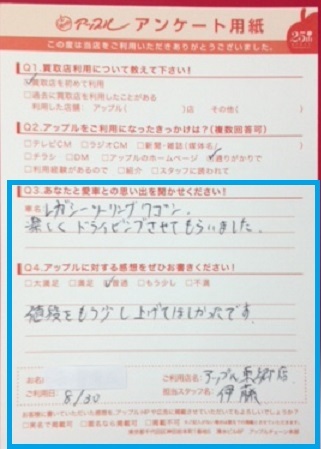 アップル アンケート用紙 25周年
この度は当店をご利用いただきありがとうございました。
Q1.買取店利用について教えて下さい!
☑買取店を初めて利用
□過去に買取店を利用したことがある
利用した店舗 アップル( )店 その他( )
Q2.アップルをご利用になったきっかけは?(複数回答可)
□テレビCM □ラジオCM □新聞・雑誌(媒体名 )
□チラシ □DM □アップルのホームページ ☑通りがかりで
□利用経験があるので □紹介 □スタッフに誘われて
Q3.あなたと愛車との思い出を聞かせください!
車名 レガシーツーリングワゴン.
楽しくドライビングさせてもらいました.
Q4.アップルに対する感想をぜひお書きください!
□大満足 □満足 ☑普通 □もう少し □不満
値段をもう少し上げてほしかったです.
お名前
ご利用店名:アップル東郷店
ご利用日:8/30
担当スタッフ名:伊藤
お客様に書いていただいた感想を、アップルHPや広告に掲載させていただいてもよろしいでしょうか?
□実名で掲載可 □匿名なら掲載可 □掲載不可